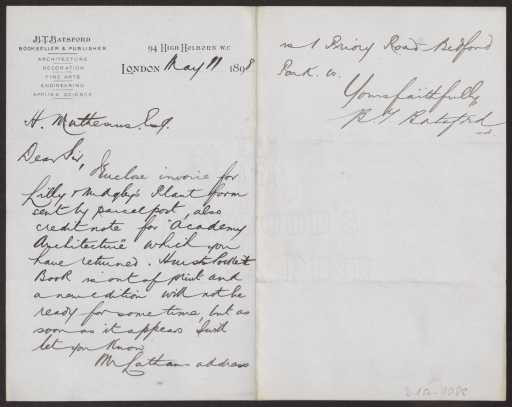 B.T. BATSFORD
BOOKSELLER & PUBLISHER
ARCHITECTURE
DECORATION
FINE ARTS
ENGINEERING
APPLIED SCIENCE
94 HIGH HOLBORN W.C.
LONDON May 11 1898
H. Mathews Esq.
Dear Sir,
Enclose invoice for
Lilly & Midgley's Plant form
sent by parcel post, also
credit note for "Academy
Architecture" which you
have returned. Hursts Pocket
Book is out of print and
a new edition will not be
ready for some time, but as
soon as it appears I will
let you know
Mr Lathams address
is 1 Priory Road Bedford
Park. W.
Yours faithfully
B T Batsford